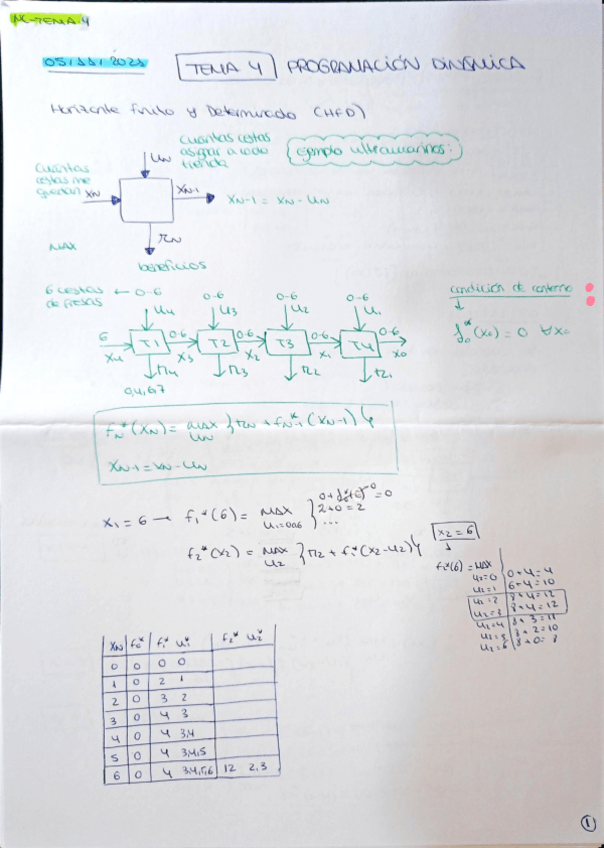 NC-TEMA 4
05/11/2021 TEMA 4 PROGRAMACIÓN DINÁMICA
Horizonte finito y Determinado (HFD)
cuántas cestas
asignar a cada
tienda
Ejemplo ultramarinos:
cuántas
cestas me
quedan
UN
XN
XN-1
XN-1 = XN - UN
MAX
rN
beneficios
6 cestas ← 0-6
de fresas
0-6 0-6 0-6
U4 U3 U2 U1
6 T1 0-6 T2 0-6 T3 0-6 T4 0-6
X4 X3 X2 X1 X0
r4 r3 r2 r1
0,4,6,7
condición de contorno
↓
f0*(x0) = 0 ∀x0
fN*(XN) = MAX UN { rN + fN-1*(XN-1) }
XN-1 = XN - UN
X1 = 6 → f1*(6) = MAX U1=0,1,6 { 0 + f0*(6) = 0
2+0=2
...
f2*(x2) = MAX U2 { r2 + f1*(x2-U2) }
X2 = 6
↓
f2*(6) = MAX
U2=0 0+4=4
U2=1 6+4=10
U2=2 8+4=12
U2=3 8+4=12
U2=4 8+3=11
U2=5 8+2=10
U2=6 8+0=8
XN f0* f1* U1* f2* U2*
0 0 0 0
1 0 2 1
2 0 3 2
3 0 4 3
4 0 4 3,4
5 0 4 3,4,5
6 0 4 3,4,5,6 12 2,3
1